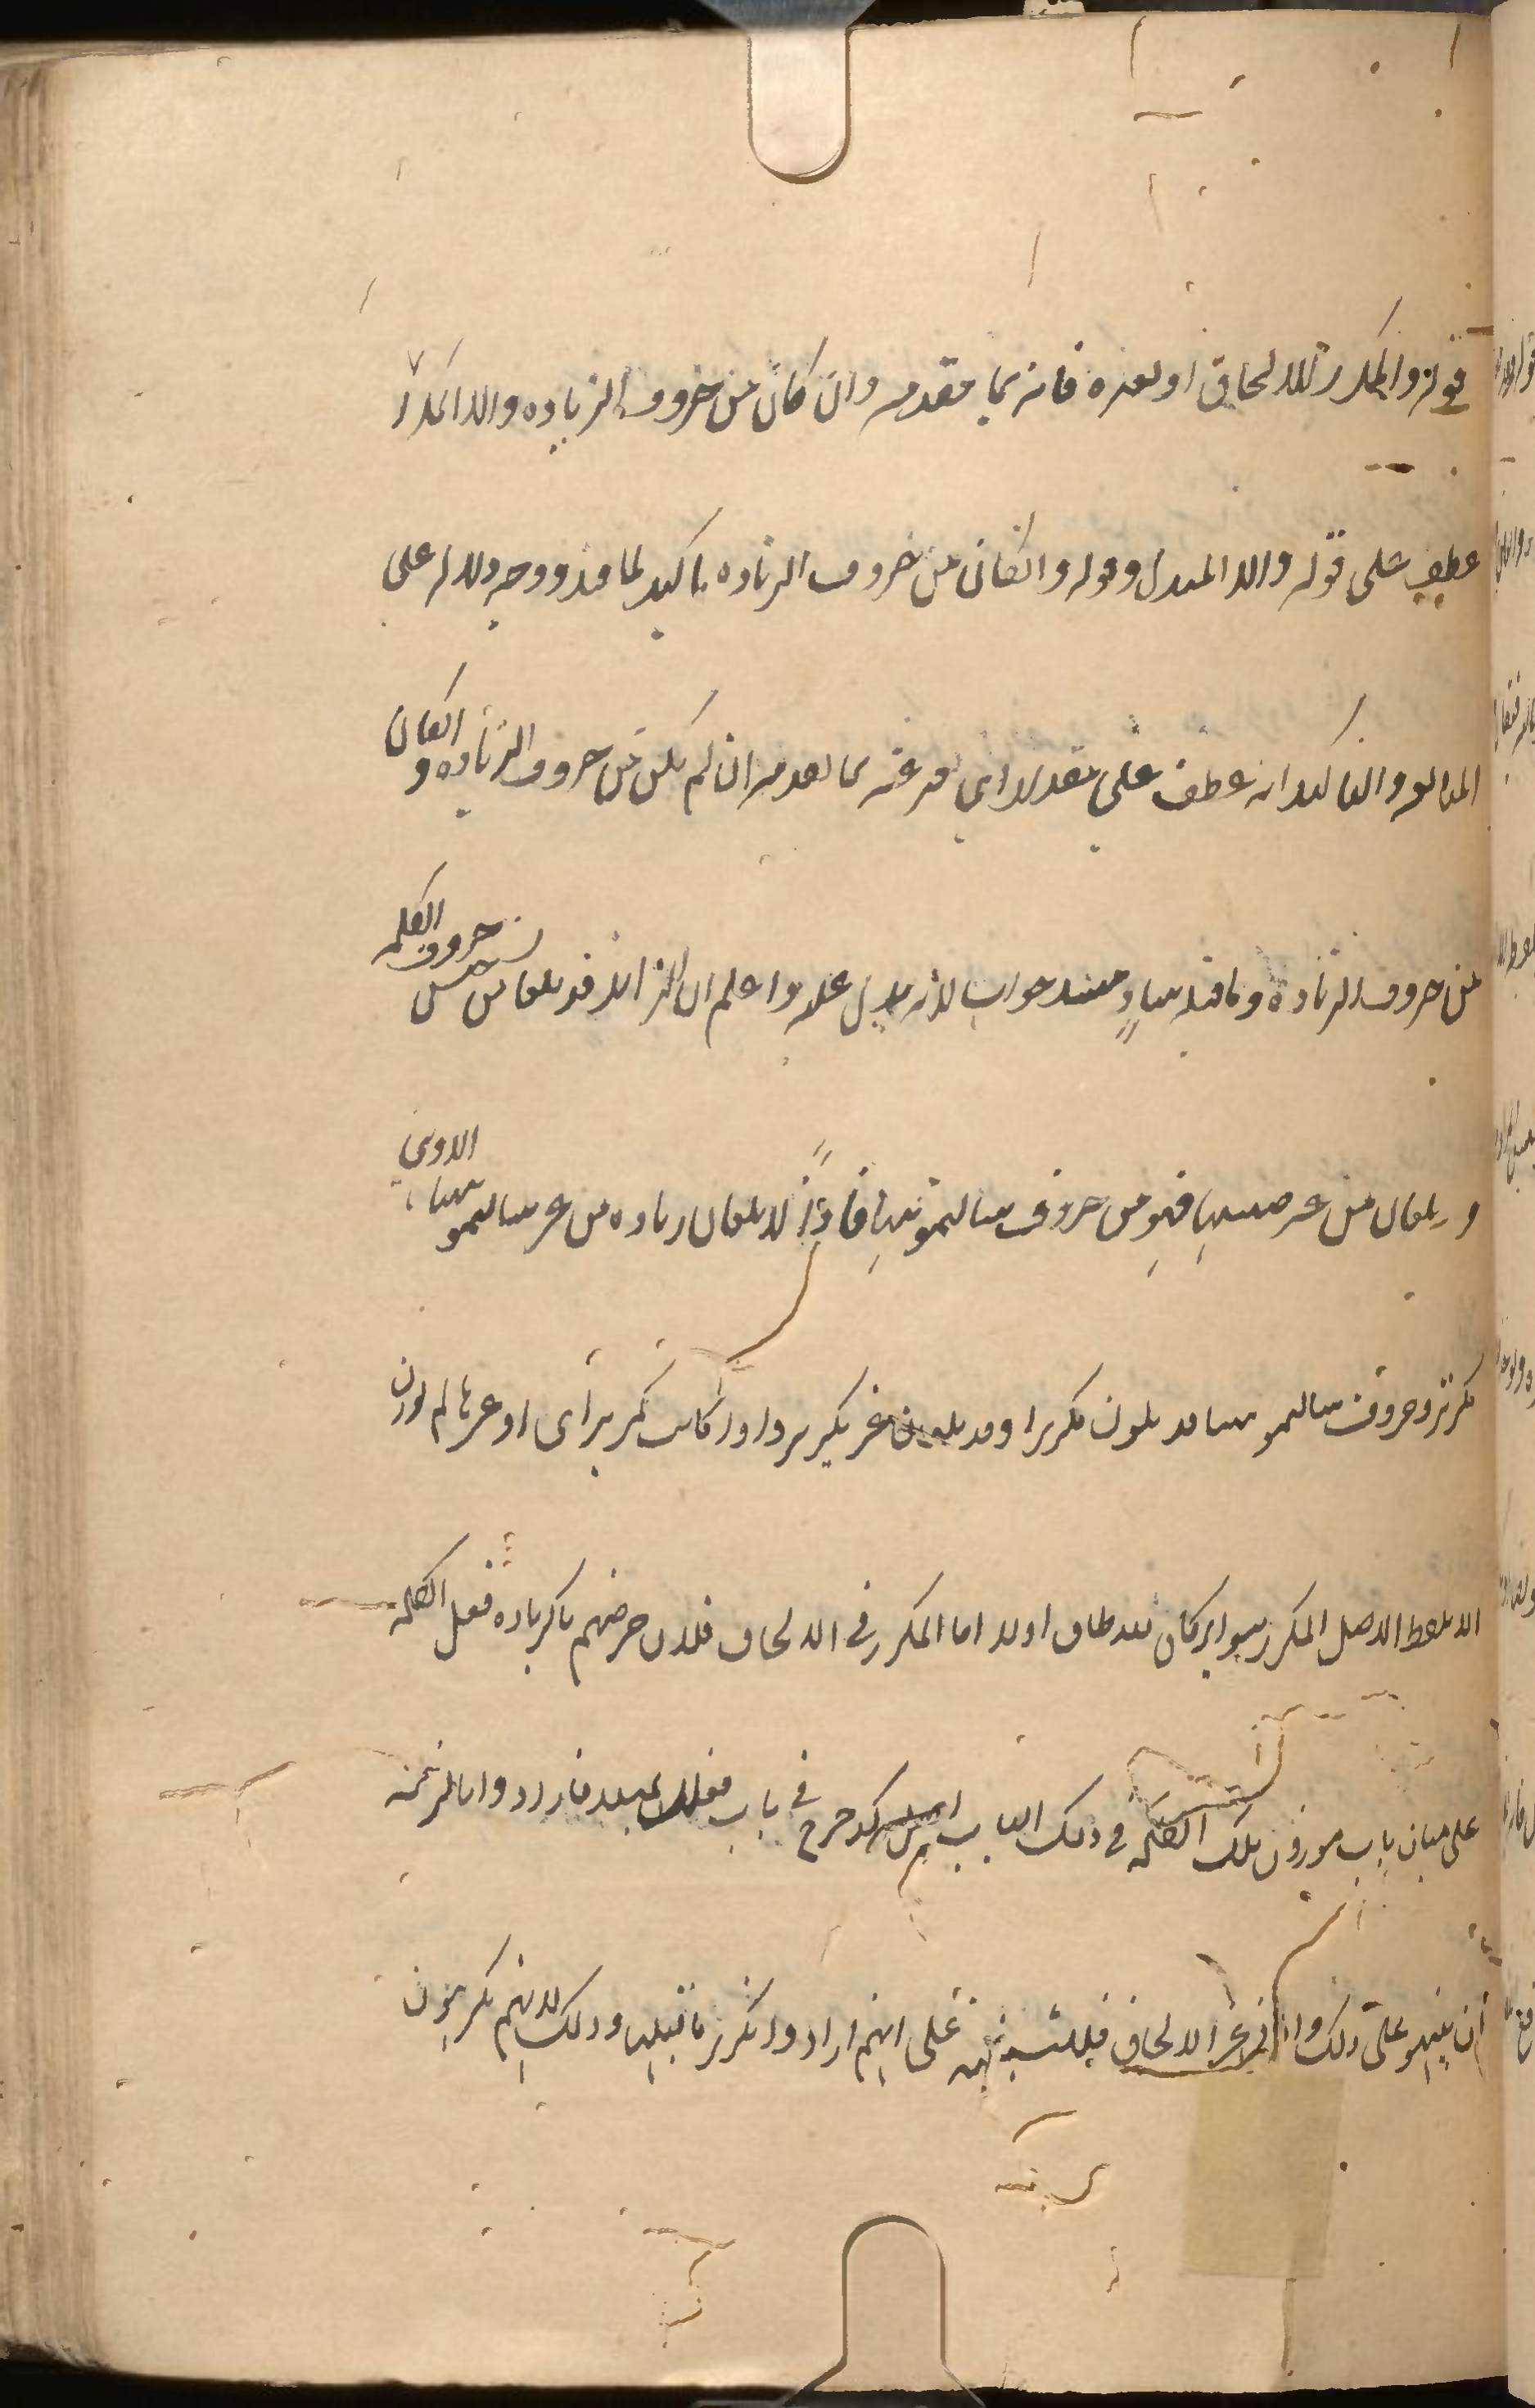 قوله والمكرر للالحاق او لغيره فانه بما تقدمه وان كان من حروف الزياده والا المكرر
عطف على قوله والا المبدل وقوله وانكان من حروف الزياده تاكيد لما قبله ووجه دلالته على
المبالغه والتاكيد انه عطف على مقدر اي يعبر عنه بما تقدمه ان لم يكن من حروف الزياده وانكان
من حروف الزيادة وما قبله ساد مسد جواب لانه يدل عليه واعلم ان الزائد قد يكون من جنس حروف الكلمه
وقد يكون من غير جنسها فهو من حروف سالتمونيها فاذا لا يكون زياده من غير سالتمونيها الا وهي
مكررة وحروف سالتمونيها قد يكون مكررا وقد يكون غير تكرير واذا كانت تكريرا اي او غيرها لم يوزن
الا بلفظ الاصل المكرر سواء كان للالحاق او لا اما المكرر في الالحاق فلان غرضهم بالزيادة جعل الكلمه
على مثال باب موزون تلك الكلمه في ذلك الباب في باب فعلل فارادوا بالزنه
ان ينبهوا على ذلك واما في غير الالحاق فللتنبيه على انهم ارادوا تكرير ما قبلها وذلك لانهم يكرهون